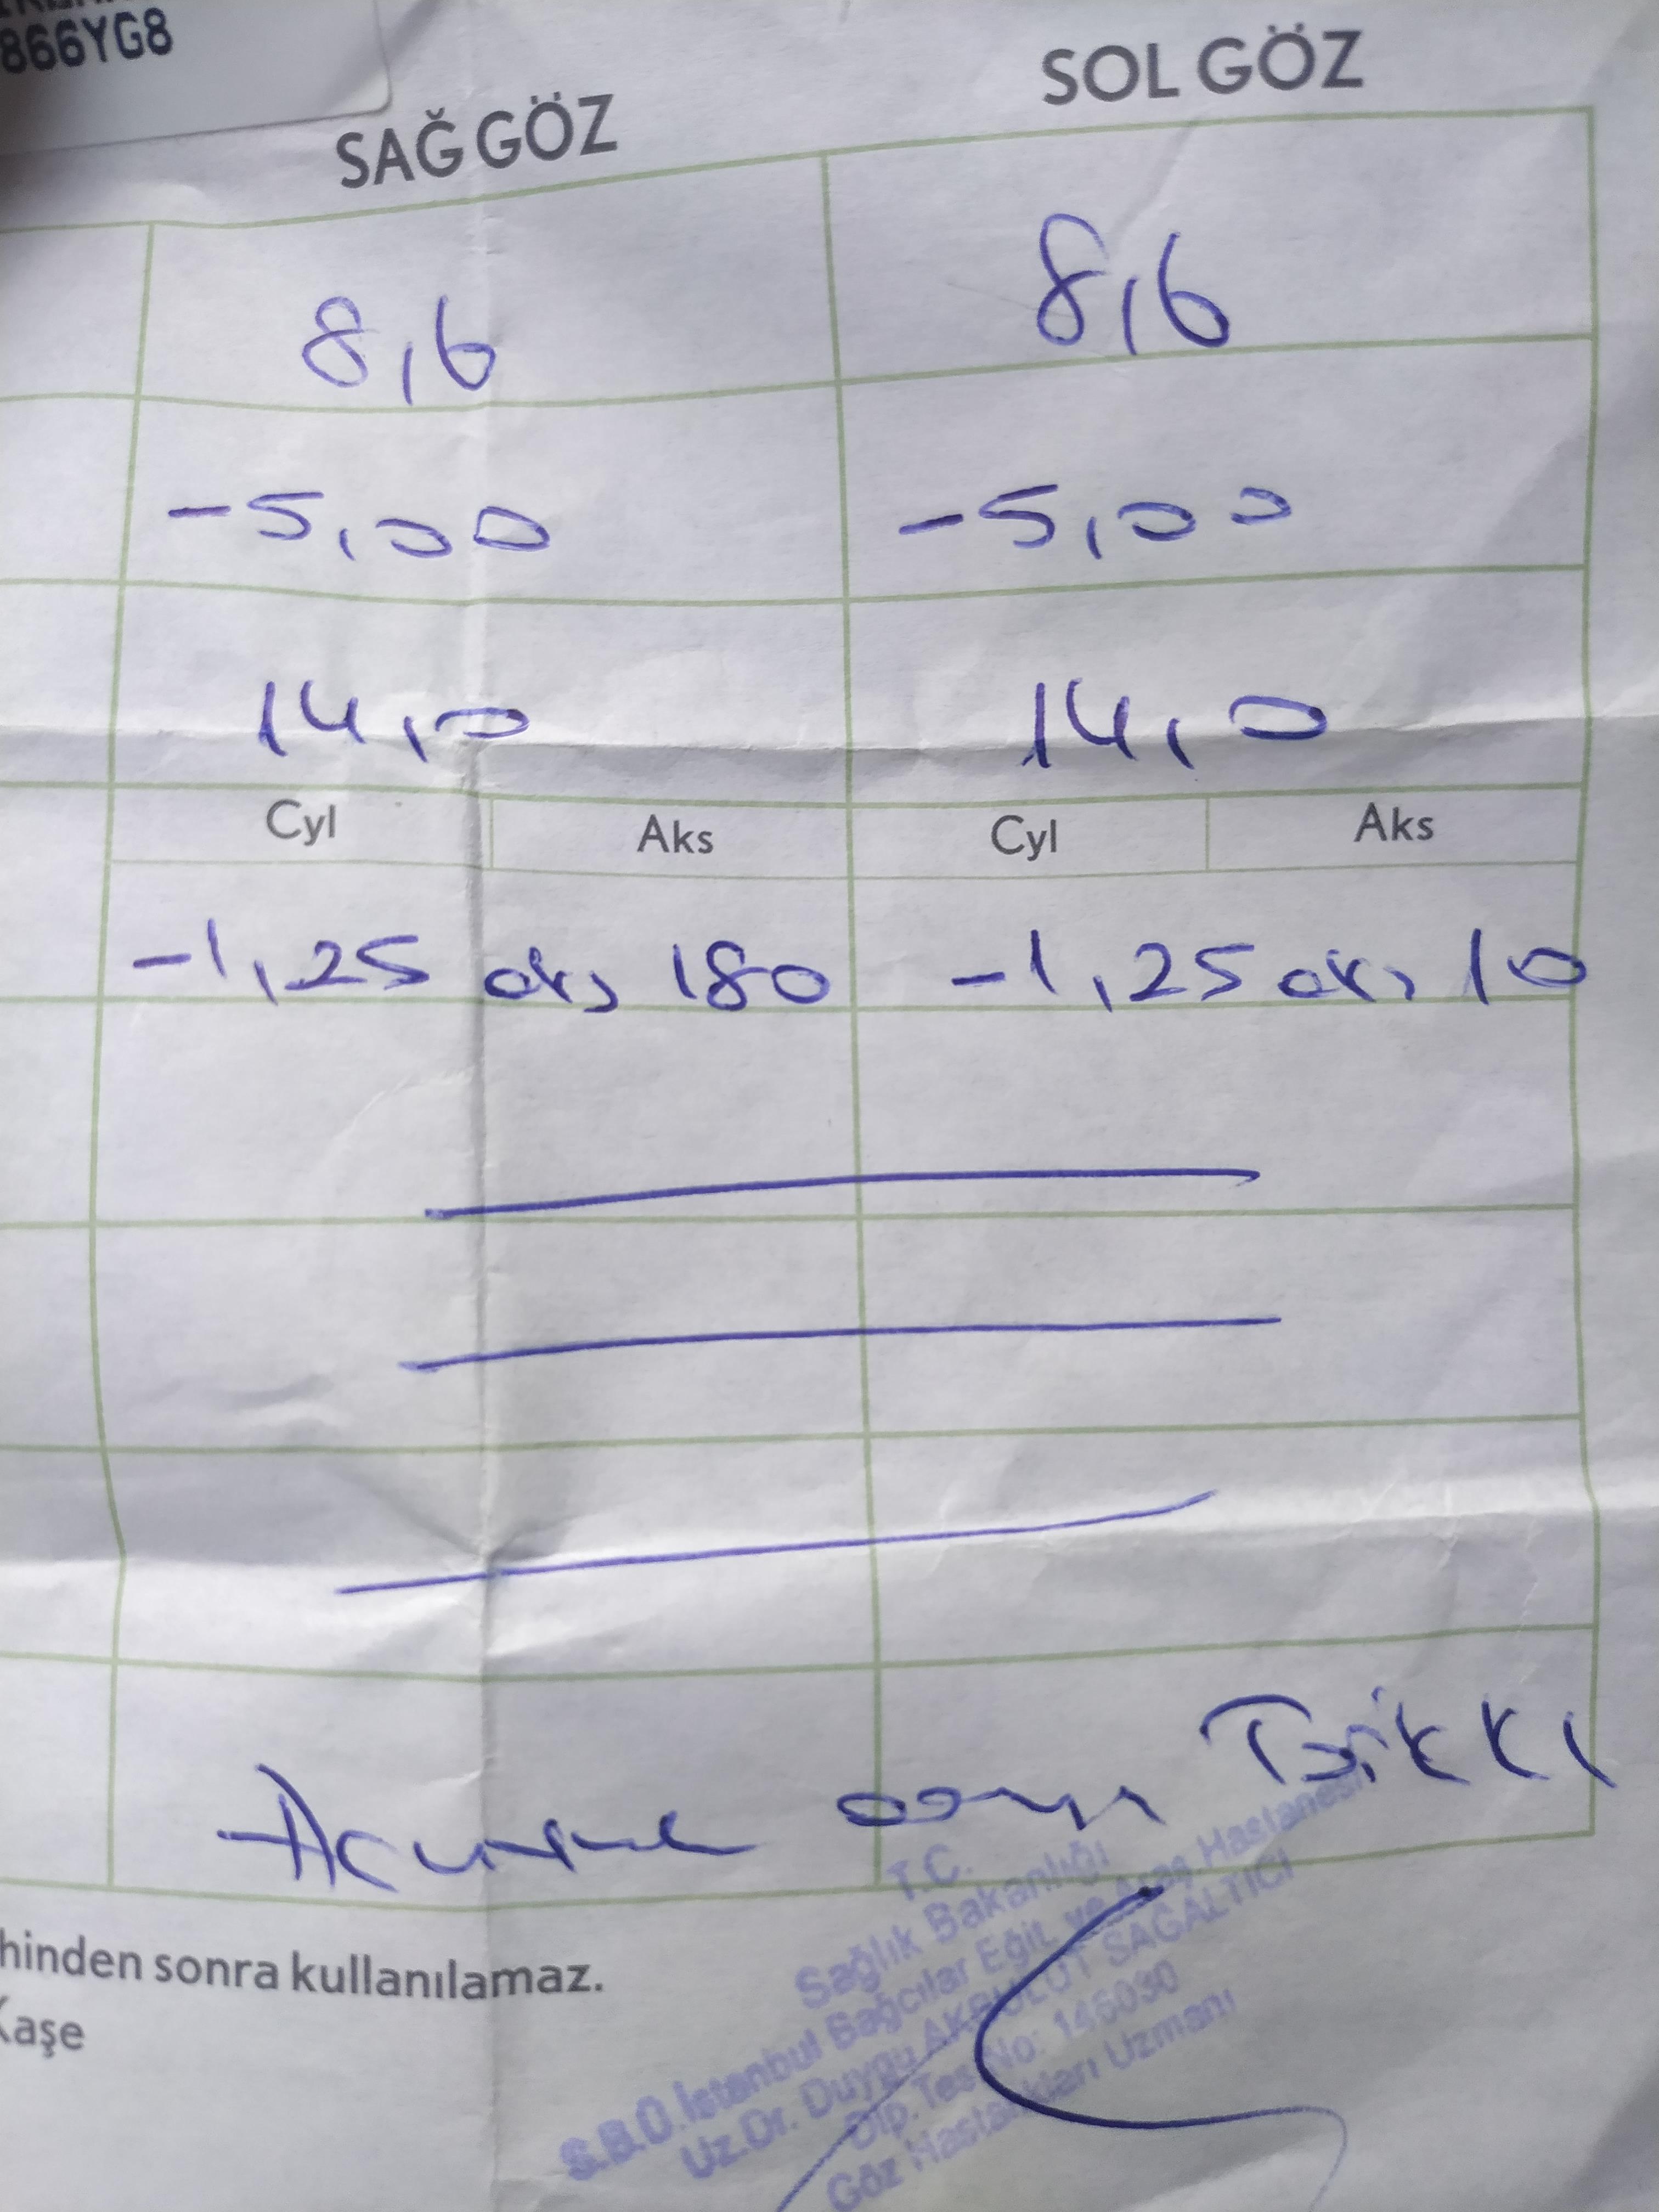 866YG8
SAĞ GÖZ SOL GÖZ
8,6 8,6
-5,00 -5,00
14,0 14,0
Cyl Aks Cyl Aks
-1,25 aks 180 -1,25 aks 10
Acuvue oasys
T.C.
Sağlık Bakanlığı
S.B.Ü. İstanbul Bağcılar Eğit. ve Araş. Hastanesi
Uz.Dr. Duygu AKBULUT SAĞALTICI
Dip. Tes. No: 146030
Göz Hastalıkları Uzmanı
hinden sonra kullanılamaz.
Kaşe